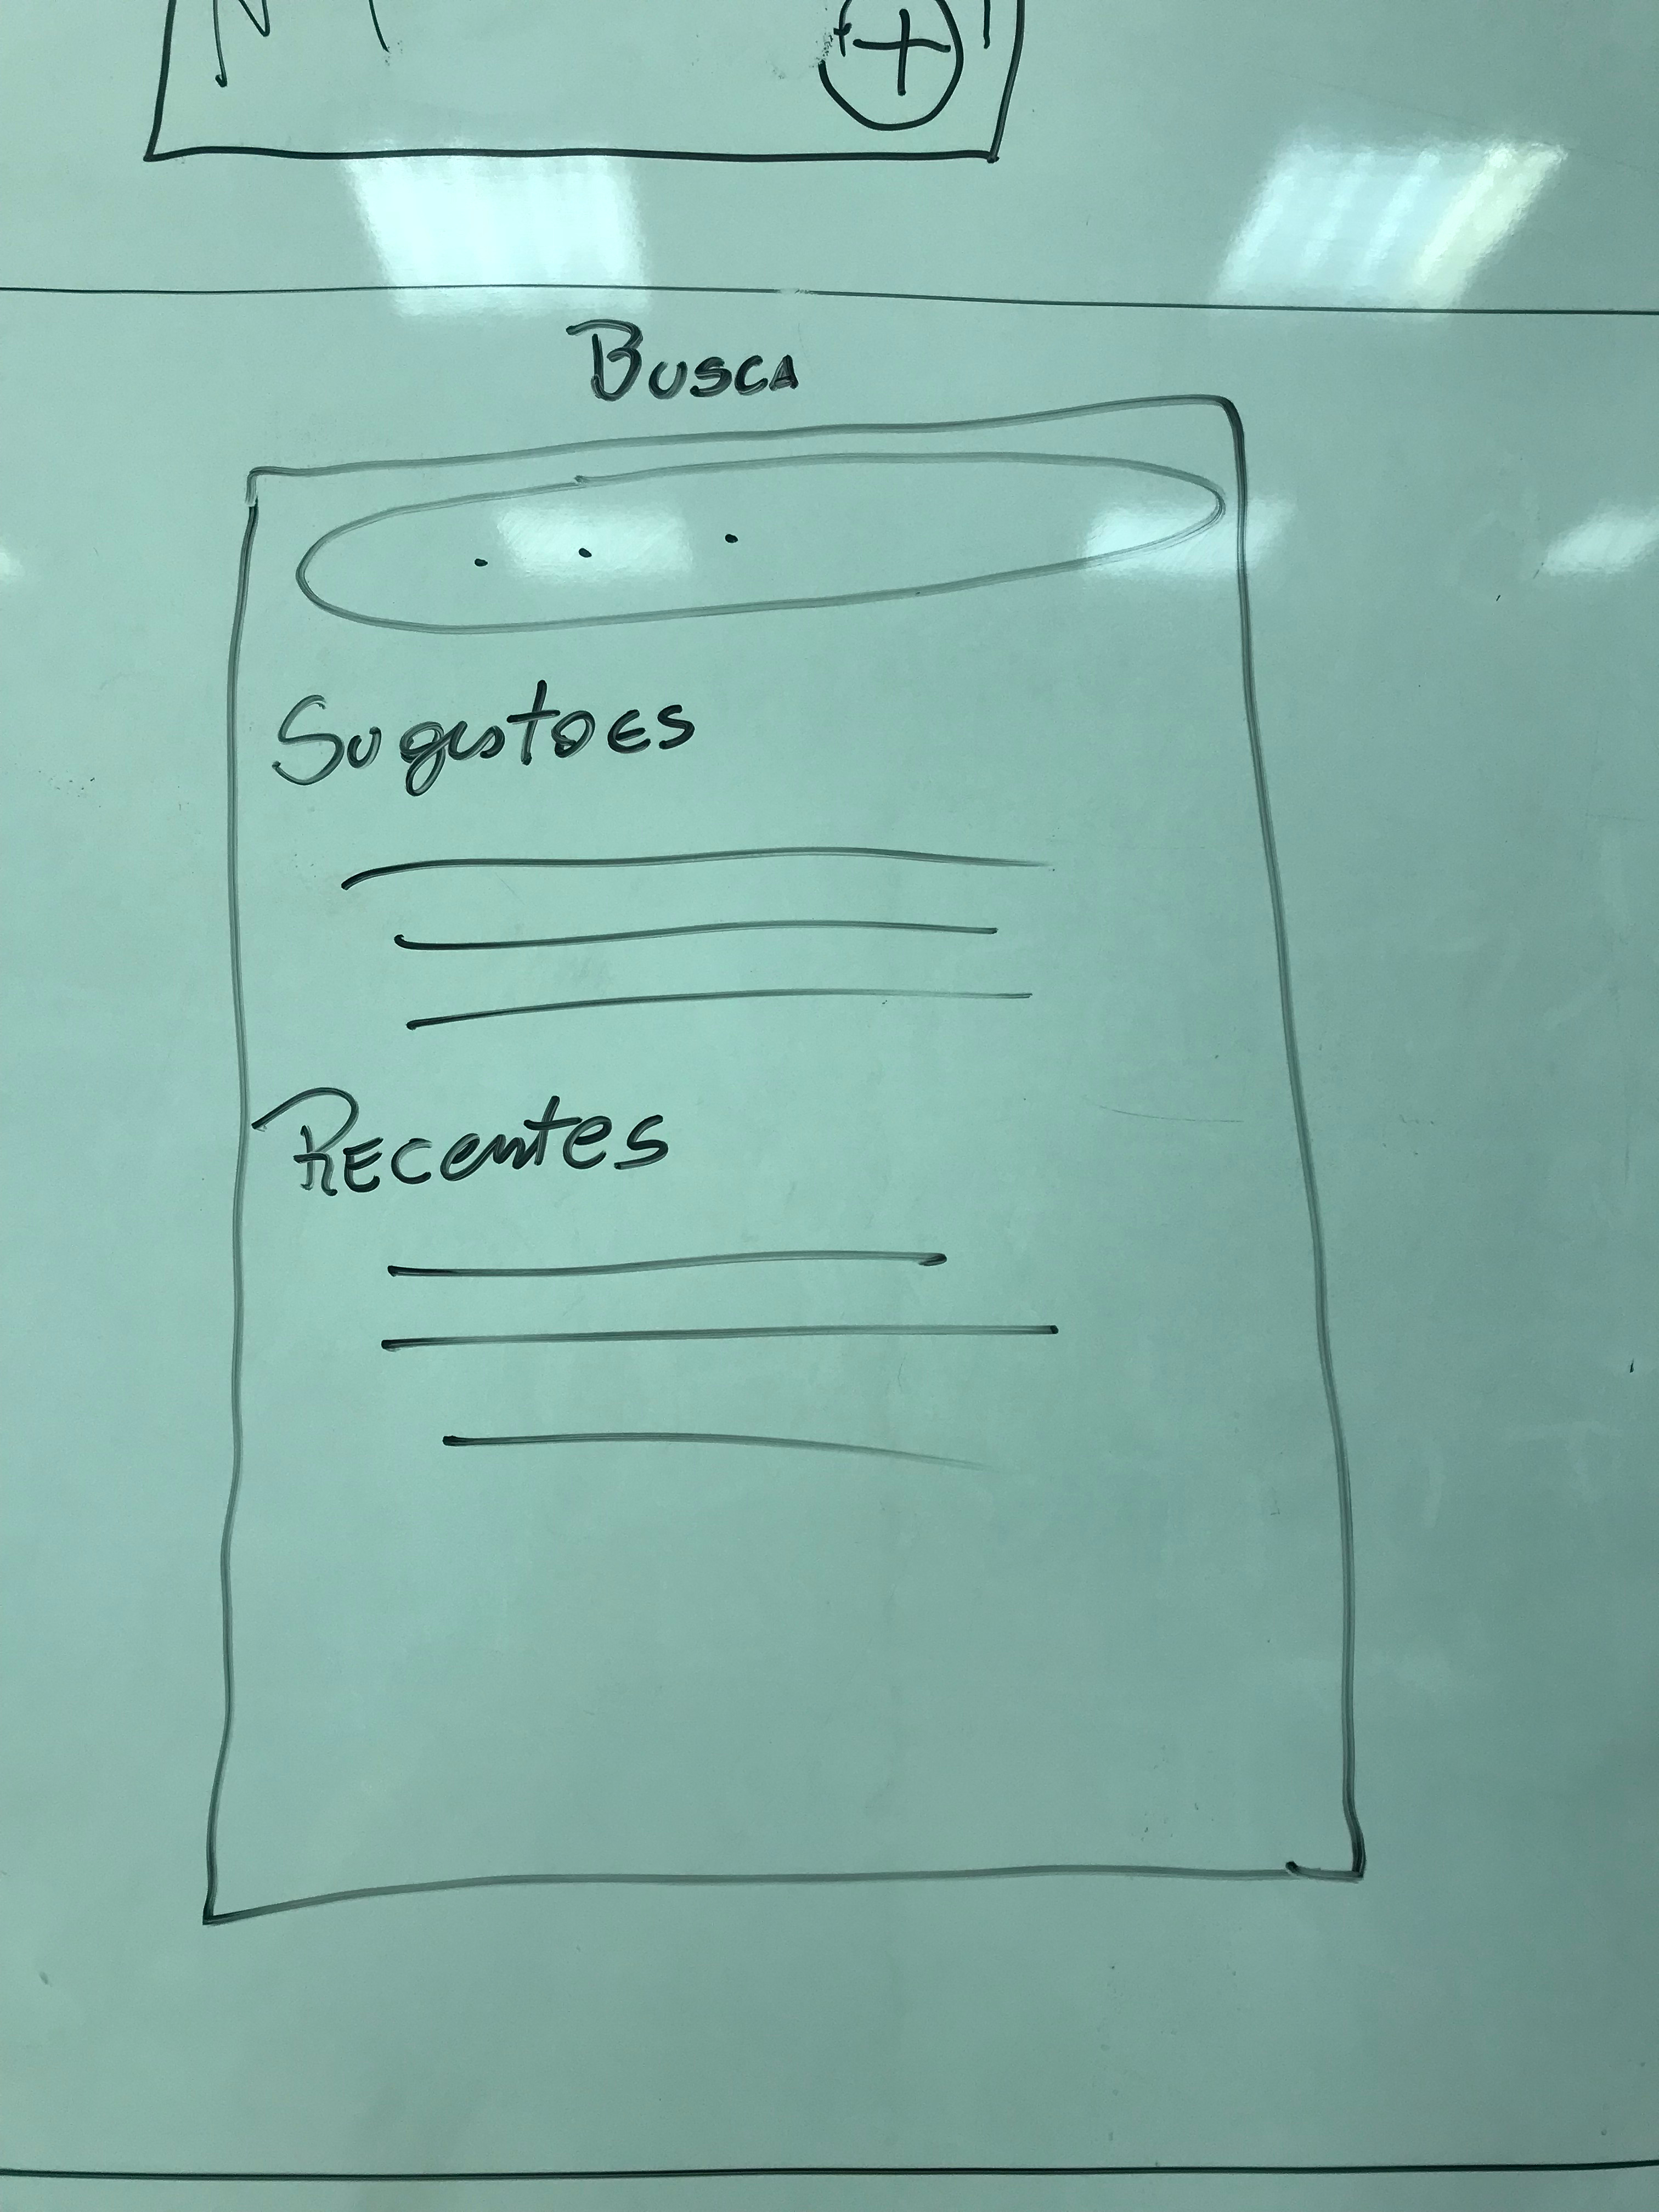 Busca
...
Sugestoes
Recentes